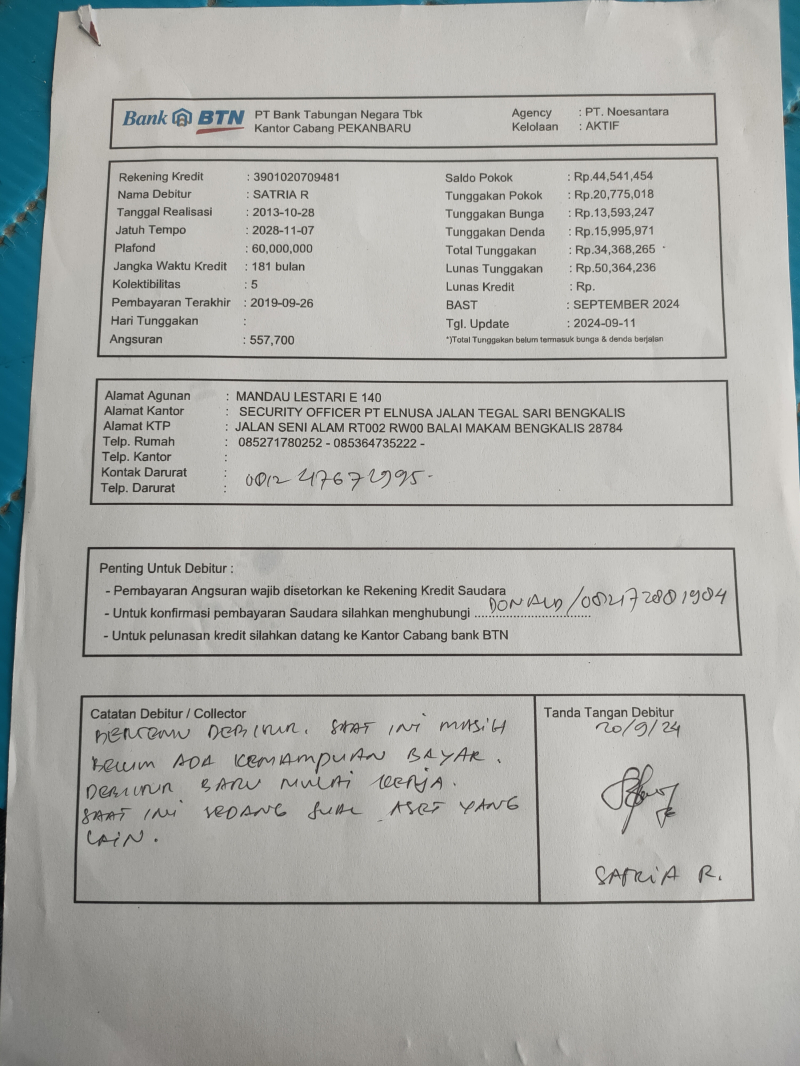 Bank BTN
PT Bank Tabungan Negara Tbk
Kantor Cabang PEKANBARU
Agency : PT. Noesantara
Kelolaan : AKTIF
Rekening Kredit : 3901020709481
Nama Debitur : SATRIA R
Tanggal Realisasi : 2013-10-28
Jatuh Tempo : 2028-11-07
Plafond : 60,000,000
Jangka Waktu Kredit : 181 bulan
Kolektibilitas : 5
Pembayaran Terakhir : 2019-09-26
Hari Tunggakan :
Angsuran : 557,700
Saldo Pokok : Rp.44,541,454
Tunggakan Pokok : Rp.20,775,018
Tunggakan Bunga : Rp.13,593,247
Tunggakan Denda : Rp.15,995,971
Total Tunggakan : Rp.34,368,265
Lunas Tunggakan : Rp.50,364,236
Lunas Kredit : Rp.
BAST : SEPTEMBER 2024
Tgl. Update : 2024-09-11
*)Total Tunggakan belum termasuk bunga & denda berjalan
Alamat Agunan : MANDAU LESTARI E 140
Alamat Kantor : SECURITY OFFICER PT ELNUSA JALAN TEGAL SARI BENGKALIS
Alamat KTP : JALAN SENI ALAM RT002 RW00 BALAI MAKAM BENGKALIS 28784
Telp. Rumah : 085271780252 - 085364735222 -
Telp. Kantor :
Kontak Darurat :
Telp. Darurat :
Penting Untuk Debitur :
- Pembayaran Angsuran wajib disetorkan ke Rekening Kredit Saudara
- Untuk konfirmasi pembayaran Saudara silahkan menghubungi DONALD/082172881984
- Untuk pelunasan kredit silahkan datang ke Kantor Cabang bank BTN
Catatan Debitur / Collector
BERTEMU DEBITUR. SAAT INI MASIH
BELUM ADA KEMAMPUAN BAYAR.
DEBITUR BARU MULAI KERJA.
SAAT INI SEDANG JUAL ASET YANG
LAIN.
Tanda Tangan Debitur
20/9/24
SATRIA R.